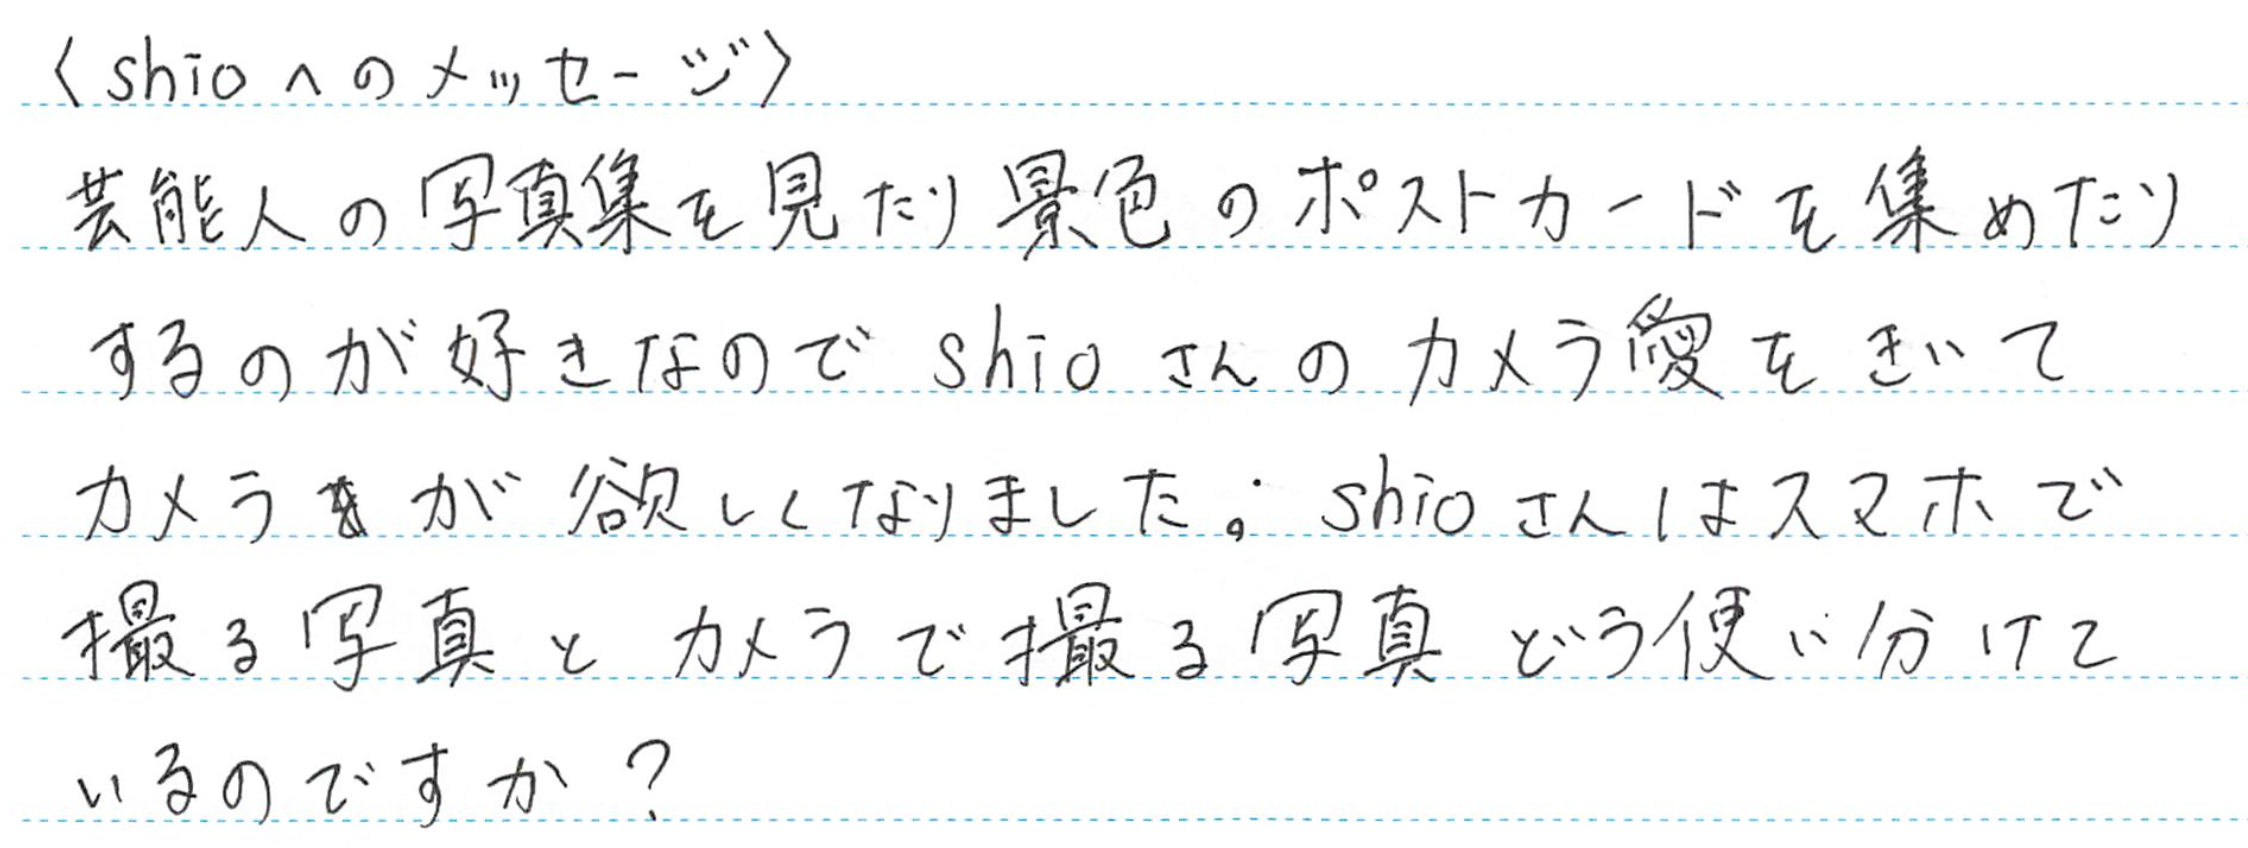 〈shioへのメッセージ〉
芸能人の写真集を見たり景色のポストカードを集めたり
するのが好きなのでshioさんのカメラ愛をきいて
カメラが欲しくなりました。shioさんはスマホで
撮る写真とカメラで撮る写真どう使い分けて
いるのですか？